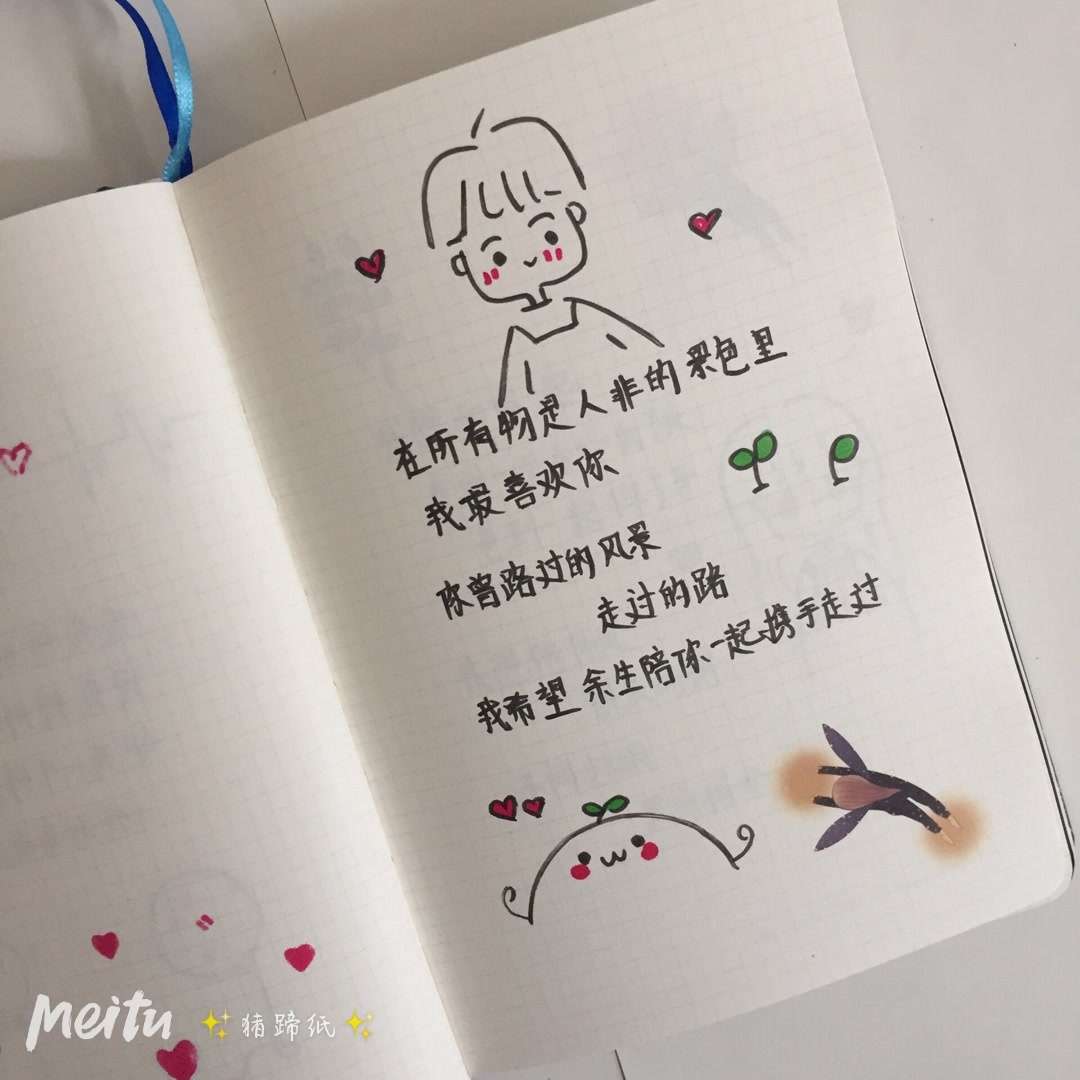 在所有物是人非的景色里
我最喜欢你
你曾路过的风景
走过的路
我希望余生陪你一起携手走过
Meitu ✨猪蹄纸✨